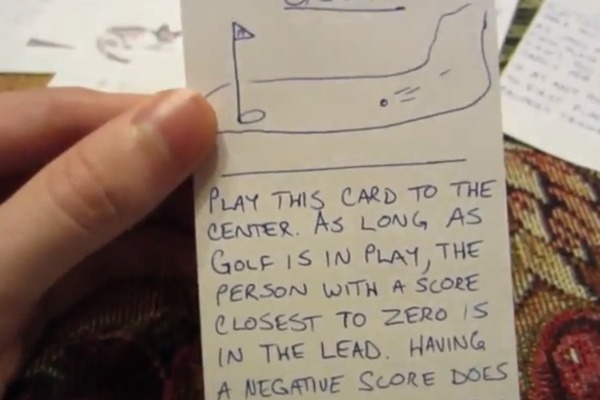 PLAY THIS CARD TO THE
CENTER. AS LONG AS
GOLF IS IN PLAY, THE
PERSON WITH A SCORE
CLOSEST TO ZERO IS
IN THE LEAD. HAVING
A NEGATIVE SCORE DOES